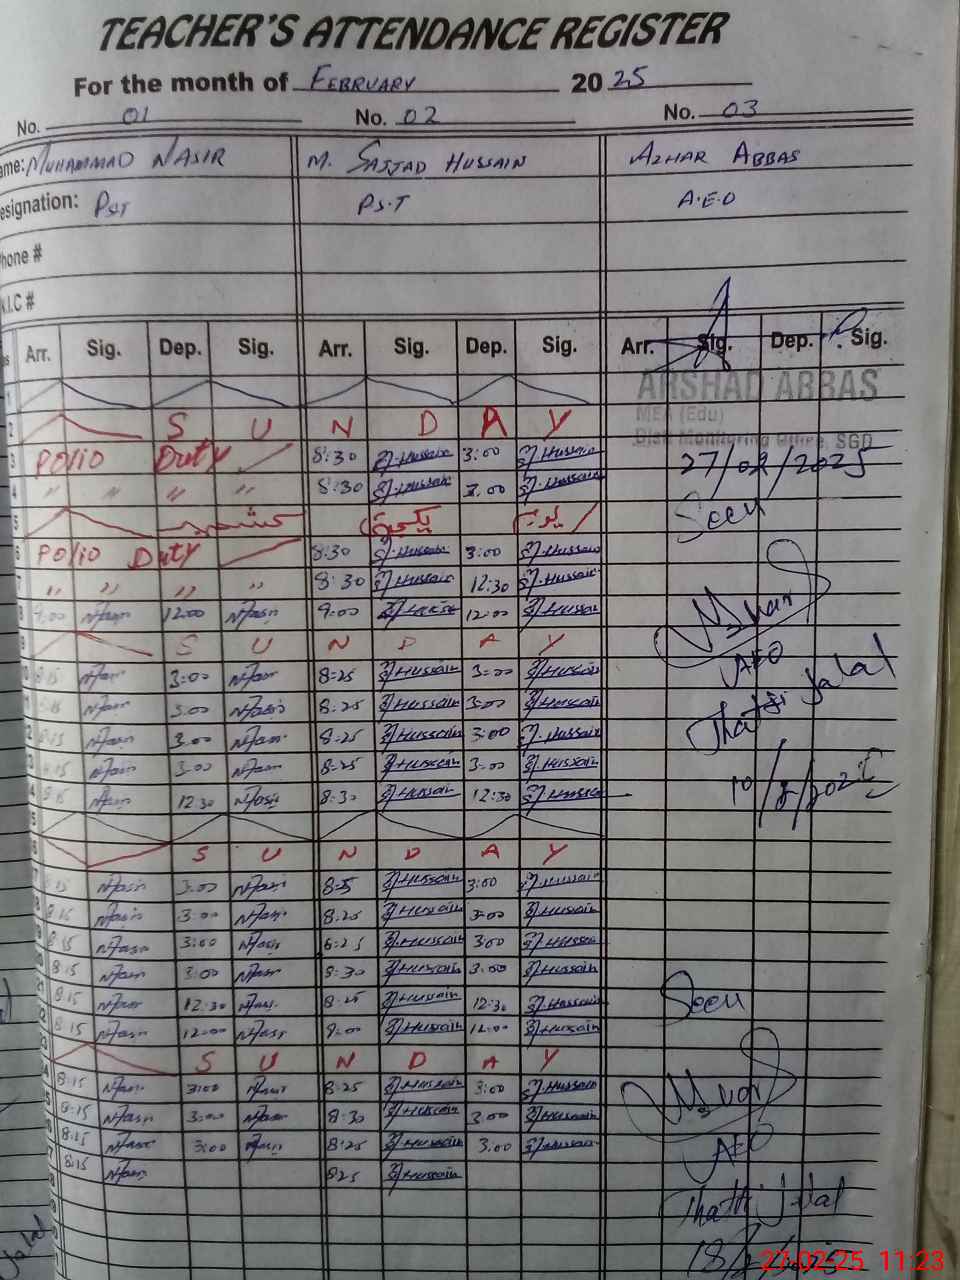 TEACHER'S ATTENDANCE REGISTER
For the month of FEBRUARY 2025
No. 01 No. 02 No. 03
ame: MUHAMMAD NASIR M. SAJJAD HUSSAIN AZHAR ABBAS
esignation: PST P.S.T A.E.O
hone #
.I.C #
Arr. Sig. Dep. Sig. Arr. Sig. Dep. Sig. Arr. Sig. Dep. Sig.
ARSHAD ABBAS
MEA (Edu)
Distt Monitoring Office, SGD
1
2 S U N D A Y
3 Polio Duty 8:30 Hussain 3:00 Hussain 27/02/2025
4 " " " " 8:30 Hussain 3:00 Hussain Seen
5 کشمیر یکجہتی
6 Polio Duty 8:30 Hussain 3:00 Hussain
7 " " " " 8:30 Hussain 12:30 Hussain
8 9:00 Nasir 12:00 Nasir 9:00 Hussain 12:00 Hussain
9 S U N D A Y AEO
8:15 Nasir 3:00 Nasir 8:25 Hussain 3:00 Hussain Thatti Jalal
8:15 Nasir 3:00 Nasir 8:25 Hussain 3:00 Hussain
8:15 Nasir 3:00 Nasir 8:25 Hussain 3:00 Hussain
8:15 Nasir 3:00 Nasir 8:25 Hussain 3:00 Hussain 10/2/2025
8:15 Nasir 12:30 Nasir 8:30 Hussain 12:30 Hussain
S U N D A Y
8:15 Nasir 3:00 Nasir 8:25 Hussain 3:00 Hussain
8:15 Nasir 3:00 Nasir 8:25 Hussain 3:00 Hussain
8:15 Nasir 3:00 Nasir 8:25 Hussain 3:00 Hussain
8:15 Nasir 3:00 Nasir 8:30 Hussain 3:00 Hussain
8:15 Nasir 12:30 Nasir 8:25 Hussain 12:30 Hussain Seen
8:15 Nasir 12:00 Nasir 9:00 Hussain 12:00 Hussain
S U N D A Y
8:15 Nasir 3:00 Nasir 8:25 Hussain 3:00 Hussain
8:15 Nasir 3:00 Nasir 8:30 Hussain 3:00 Hussain
8:15 Nasir 3:00 Nasir 8:25 Hussain 3:00 Hussain AEO
8:15 Nasir 8:25 Hussain
Thatti Jalal
18/2/2025
27-02-25 11:23